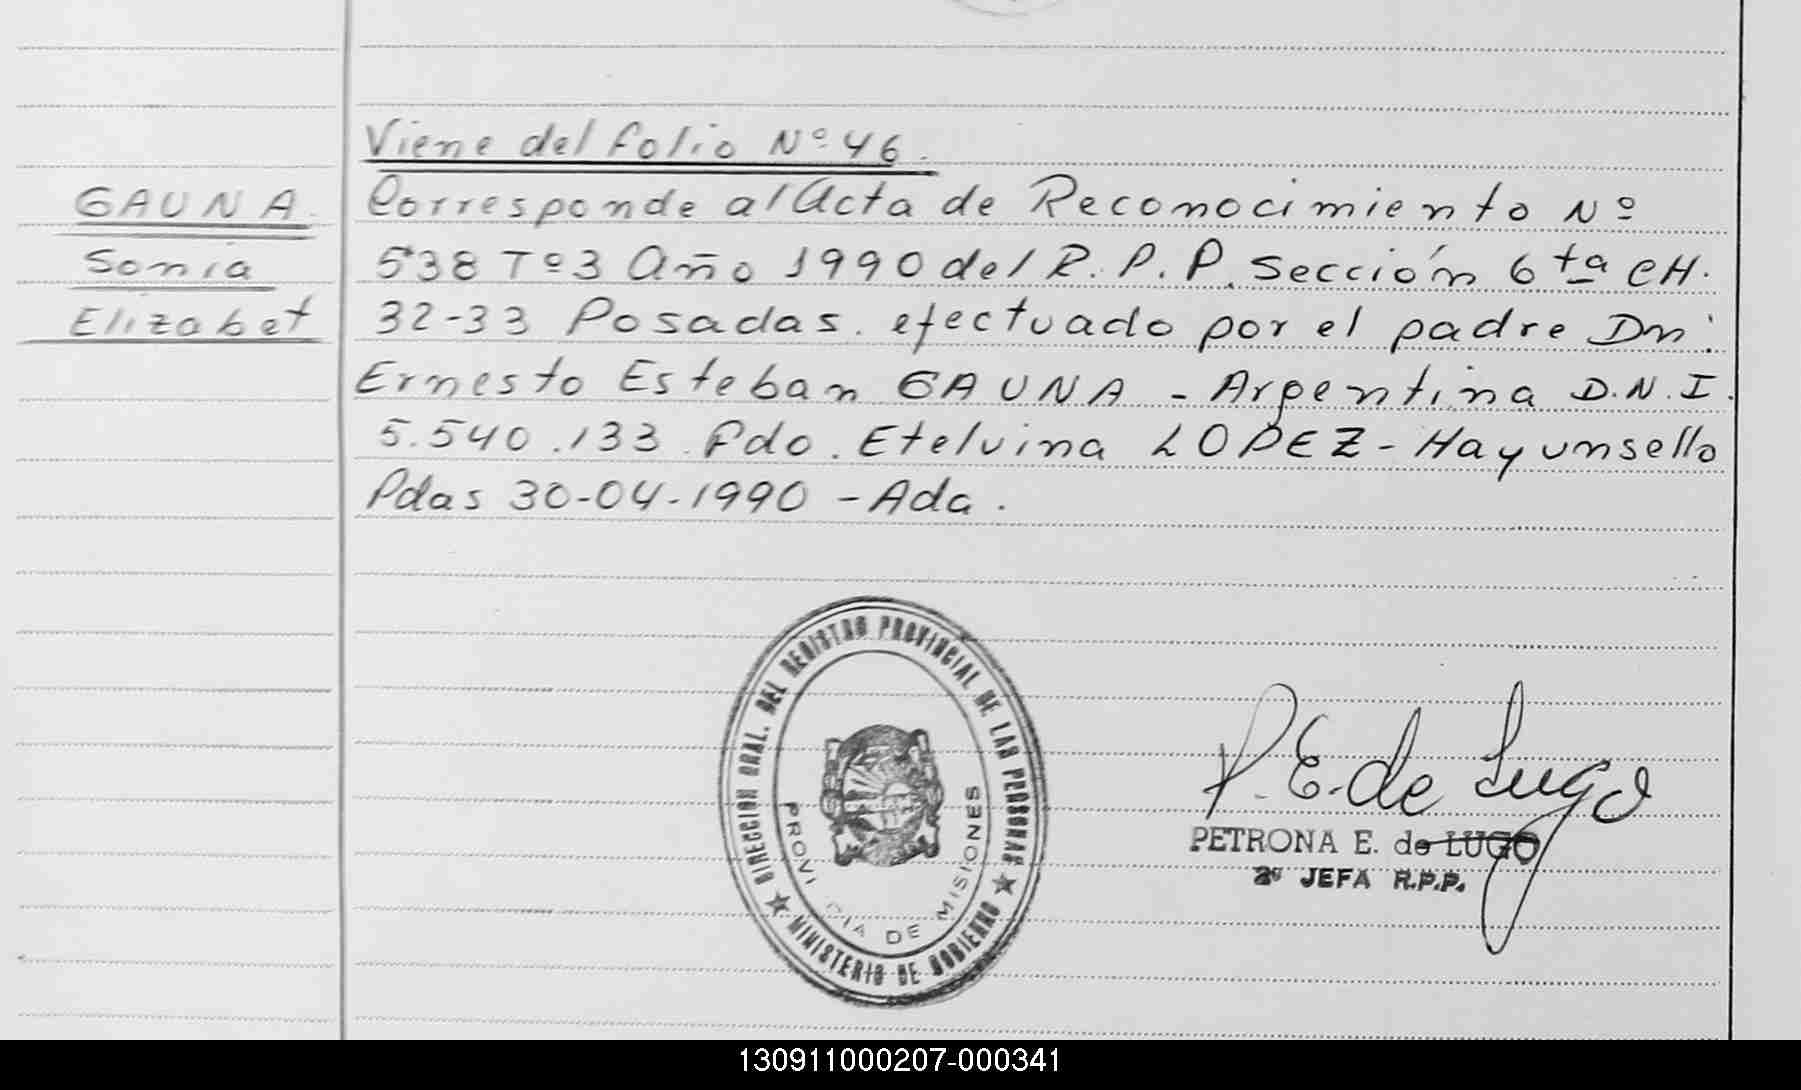 Viene del folio Nº 46.
GAUNA.
Sonia
Elizabet
Corresponde al Acta de Reconocimiento Nº
538 Tº 3 Año 1990 del R.P.P. Sección 6ta CH.
32-33 Posadas. efectuado por el padre Dn:
Ernesto Esteban GAUNA - Argentina D.N.I.
5.540.133. Fdo. Etelvina LOPEZ - Hay un sello
Pdas 30-04-1990 - Ada.
DIRECCION GRAL. DEL REGISTRO PROVINCIAL DE LAS PERSONAS
MINISTERIO DE GOBIERNO
PROVINCIA DE MISIONES
P.E. de Lugo
PETRONA E. de LUGO
2º JEFA R.P.P.
130911000207-000341